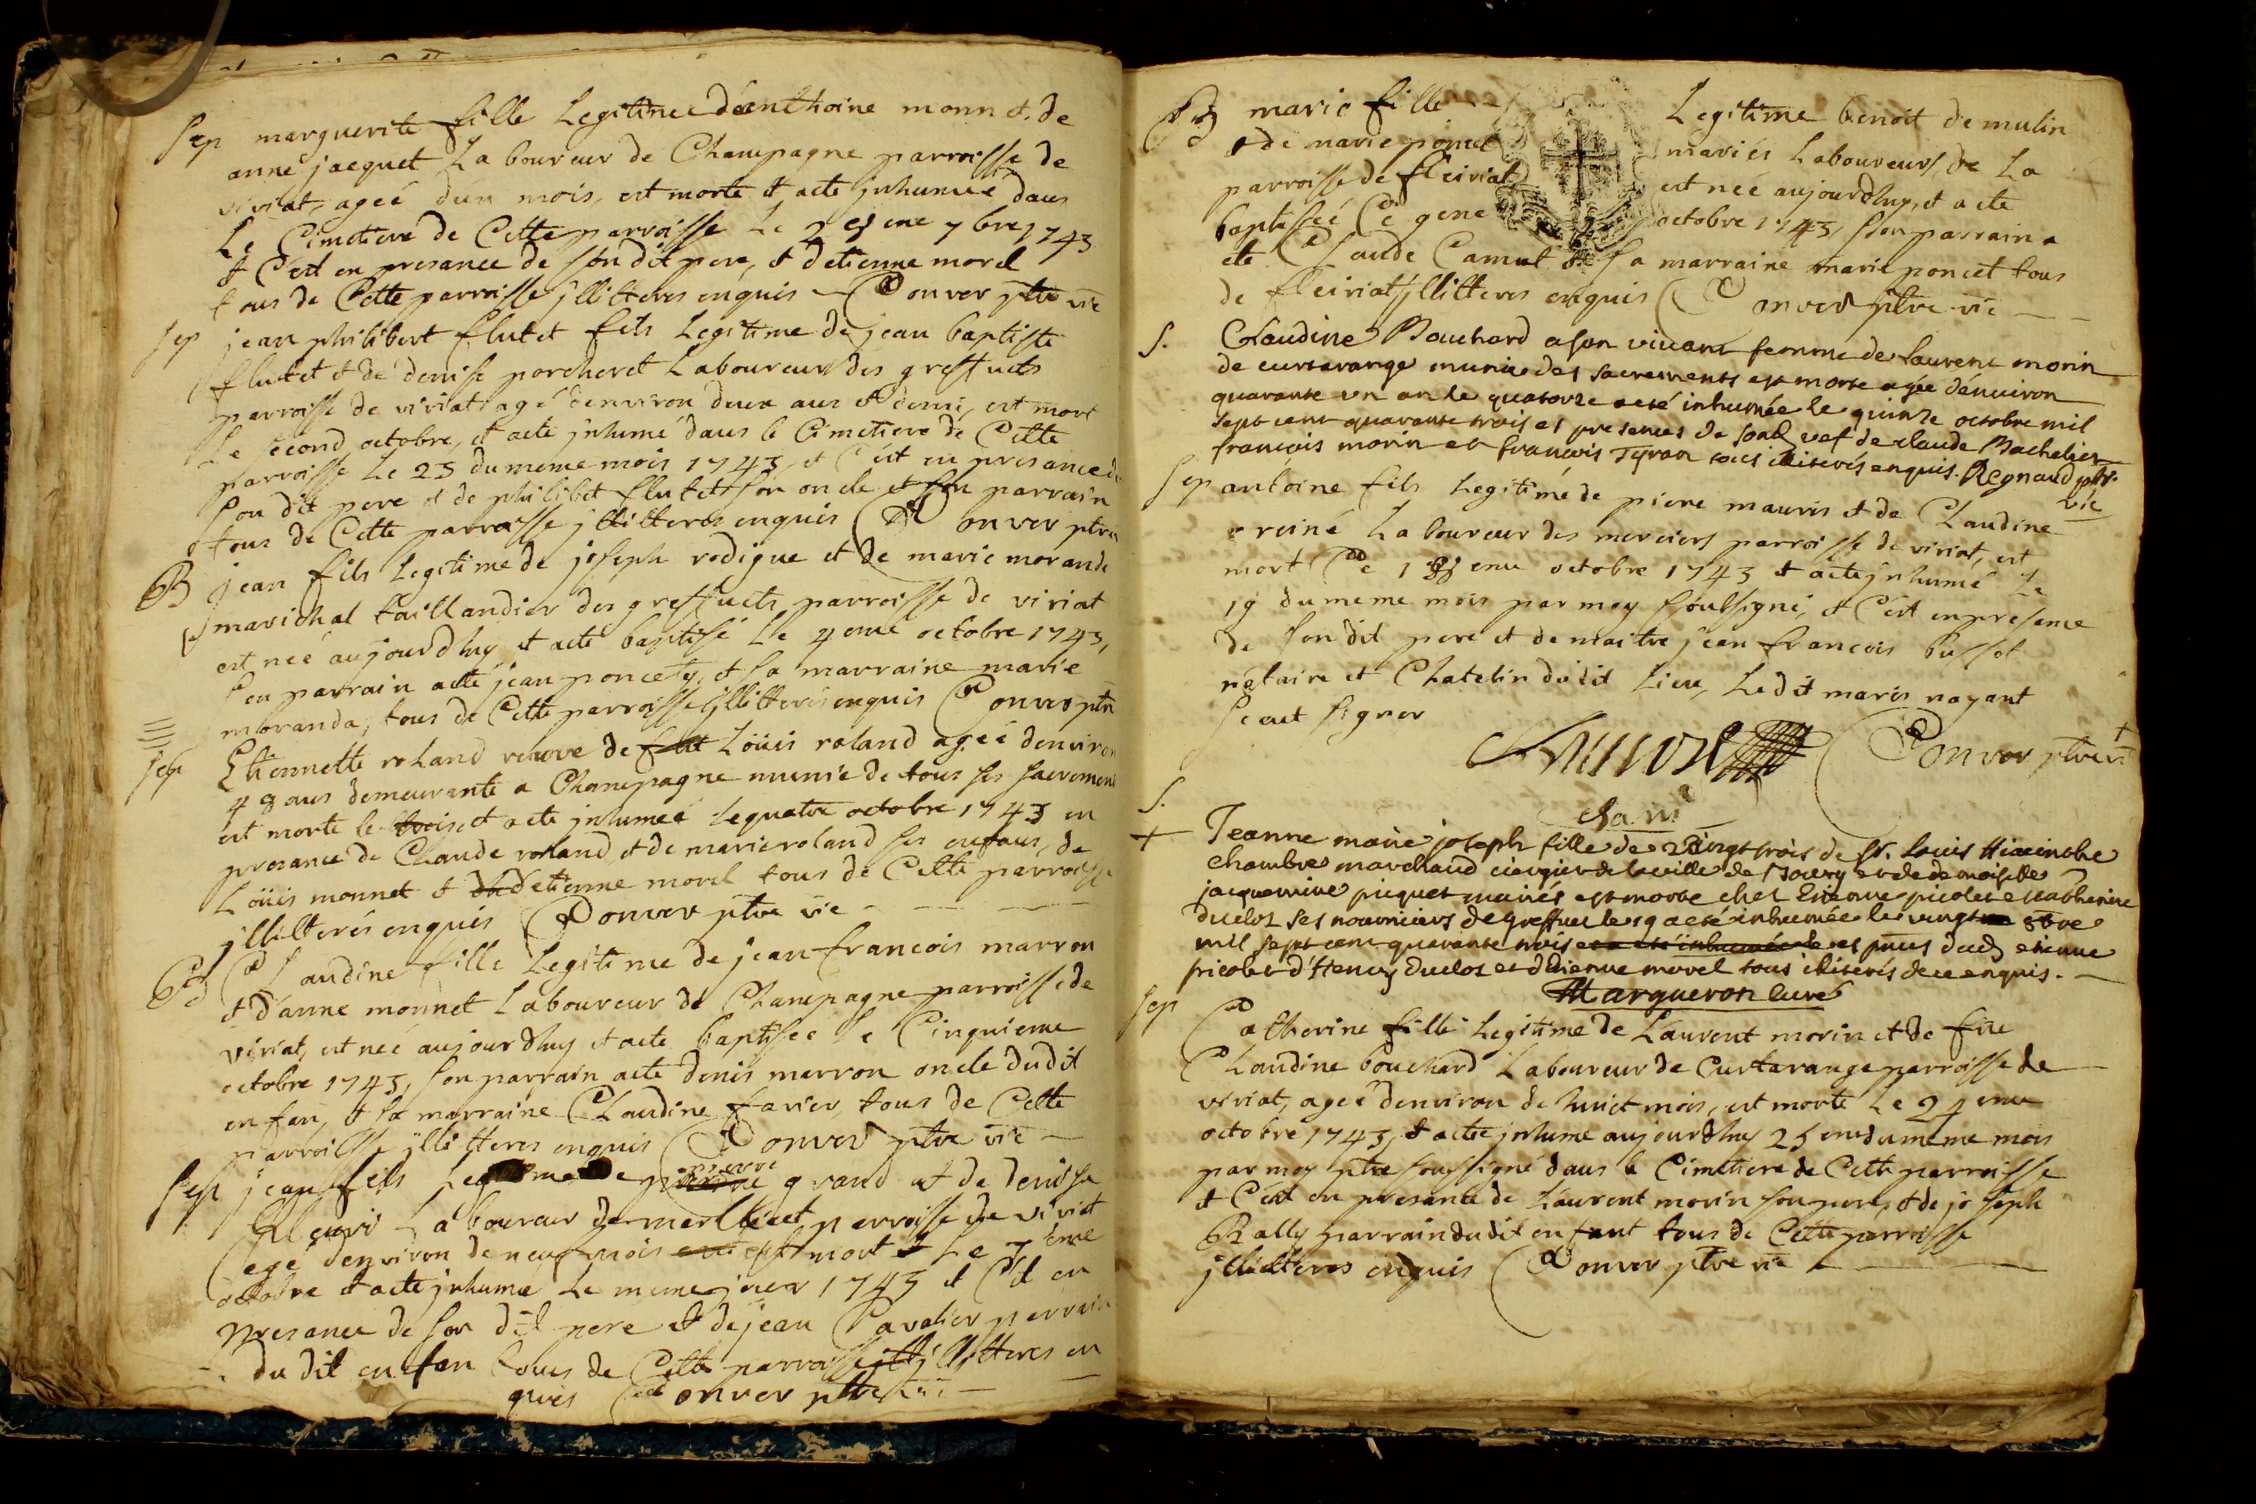 Sep marguerite fille Legitime déanthoine monn & de
anne jacquet Laboureur de Champagne parroisse de
viriat, ageé dun mois, est morte & acte jnhumeé dans
Le Cimetiere de Cette parroisse Le 29eme 7bre 1743
& C'est en presance de son dit pere, & detienne morel
tous de Cette parroisse jllitteres enquis Convers ptre vic
Sep jean philibert flutet fils Legitime de jean baptiste
flutet & de denise porcheret Laboureur des greffuets
parroisse de viriat agé denviron deux ans & demi, est mort
Le second octobre, & acte jnhumé dans le Cimetiere de Cette
parroisse Le 23 du meme mois 1743, et C'est en presance de
son dit pere & de philibet flutet son oncle et son parrain
tous de Cette parroisse jllitteres enquis Convers ptre
B jean fils Legitime de joseph rodigue et de marie moranda
marichal taillandier des greffuets parroisse de viriat
est neé aujourdhuy & acte baptisé Le 4eme octobre 1743,
son parrain acte jean poncety, & sa marraine marie
moranda, tous de Cette parroisse jllitterés enquis Convers ptre
Sep Etiennette roland veuve de Loüis roland ageé denviron
48 ans demeurante a Champagne munie de tous ses sacremens
est morte le trois et acte jnhumeé Le quatre octobre 1743 en
presance de Claude roland, & de marie roland ses enfans, de
Loüis monnet & detienne morel tous de Cette parroisse
jllitterés enquis Convers ptre vic
B Claudine fille Legitime de jean francois marron
& d'anne monnet Laboureur de Champagne parroisse de
viriat, est neé aujourdhuy & acte baptiseé Le Cinquieme
octobre 1743, son parrain acte denis merron oncle dudit
enfan, & sa marraine Claudine favier, tous de Cette
parroisse jllitteres enquis Convers ptre vic
Sep jean fils Legitime de pierre grand & de denisse
Laboureur de parroisse de viriat
egé denviron de neuf mois est mort Le 7eme
octobre & acte jnhume Le meme jour 1743 & C'est en
presance de son dit pere & de jean Cavalier perrain
du dit enfan tous de Cette parroisse jllitteres en
quis Convers ptre vic
B marie fille Legitime benoit de mulin
& de marie poncet mariés Laboureurs de La
parroisse de fleiriat est neé aujourdhuy, & acte
baptiseé Ce octobre 1743, son parrain a
ete Claude Camut & sa marraine marie poncet tous
de fleiriat jllitteres enquis Convers ptre vic
S. Claudine Bouchard a son vivant femme de Laurent morin
de curtarange munie des sacrements est morte agée dénuiron
quarante un an le quatorze a eté inhumée le quinze octobre mil
sept cent quarante trois es presences de vef de claude Bachelier
françois morin et francois Tyran tous iliterés enquis. Regnaud ptr.
vic
Sep antoine fils Legitime de piere mauris & de Claudine
Laboureur des merciers parroisse de viriat, est
mort Le 18eme octobre 1743 & acte jnhumé Le
19 du meme mois par moy soussigné, & C'est en presence
de son dit pere et de maitre jean francois bussot
notaire et Chatelin du dit Lieu, Le dit maris nayant
sceut signer
Convers ptre vic
S. Jeanne marie joseph fille de de Sr. Louis Hiacinthe
chambre marchand ciergier de la ville de Bourg et de demoiselle
jacquemine picquet mariés est morte chez Etienne picolet et catherine
duclos ses nourriciers de greffuet les a eté inhumée le vingt 8bre
mil sept cent quarante trois es pnces dud etienne
picolet d'Henry duclos et d'Etienne morel tous iliterés de ce enquis.
Margueron curé
Sep Catherine fille Legitime de Laurent morin et de füe
Claudine bouchard Laboureur de Curtarange parroisse de
viriat, ageé denviron de huict mois, est morte Le 24eme
octobre 1743, & acte jnhume aujourdhuy 25eme du meme mois
par moy ptre soussigné dans le Cimetiere de Cette parroisse
& C'est en presante de Laurent morin son pere, & de joseph
Rally parrain du dit enfant tous de Cette parroisse
jllitteres enquis Convers ptre vic